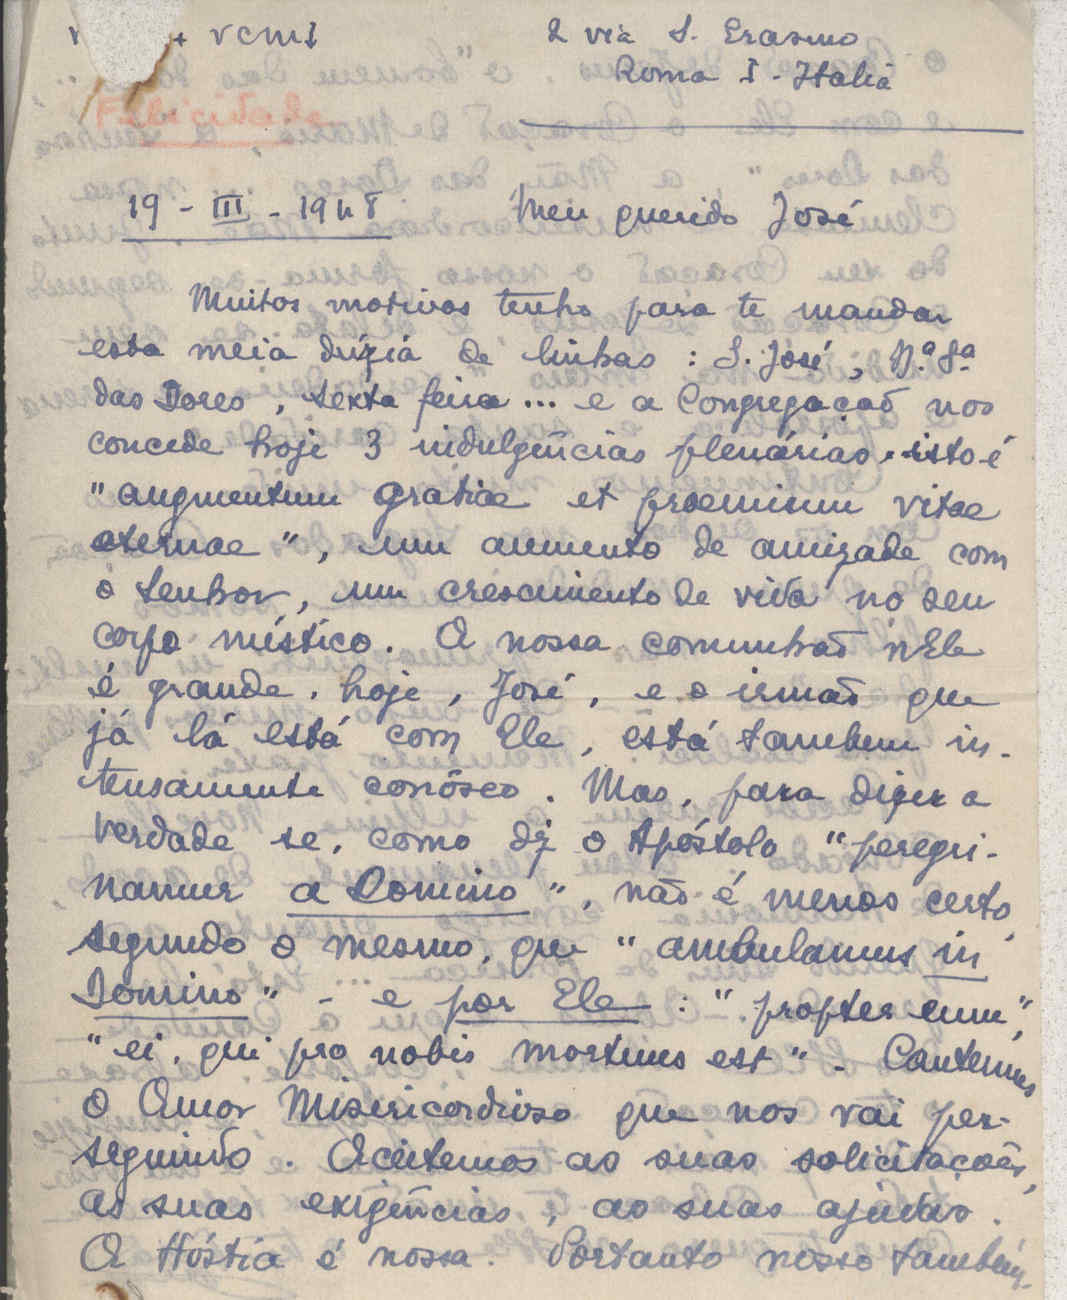 + VCMI
2 via S. Erasmo
Roma I - Italia
Felicidade
19 - III - 1948 Meu querido José
Muitos motivos tenho para te mandar
esta meia dúzia de linhas : S. José, N.ª S.ª
das Dores, sexta feira ... e a Congregação nos
concede hoje 3 indulgências plenárias. isto é
"augmentum gratiae et praemium vitae
eternae", um aumento de amizade com
o Senhor, um crescimento de vida no seu
corpo místico. A nossa comunhão n'Ele
é grande, hoje, José, e o irmão que
já lá está com Ele, está tambem in-
tensamente conôsco. Mas, para dizer a
verdade se, como diz o Apóstolo "peregri-
namur a Domino", não é menos certo,
segundo o mesmo, que "ambulamus in
Domino" - e por Ele : "propter eum",
"ei, qui pro nobis mortuus est" - Cantemos
o Amor Misericordioso que nos vai per-
seguindo. Aceitemos as suas solicitações,
as suas exigências, as suas ajudas.
A Hóstia é nossa. Portanto nosso também,